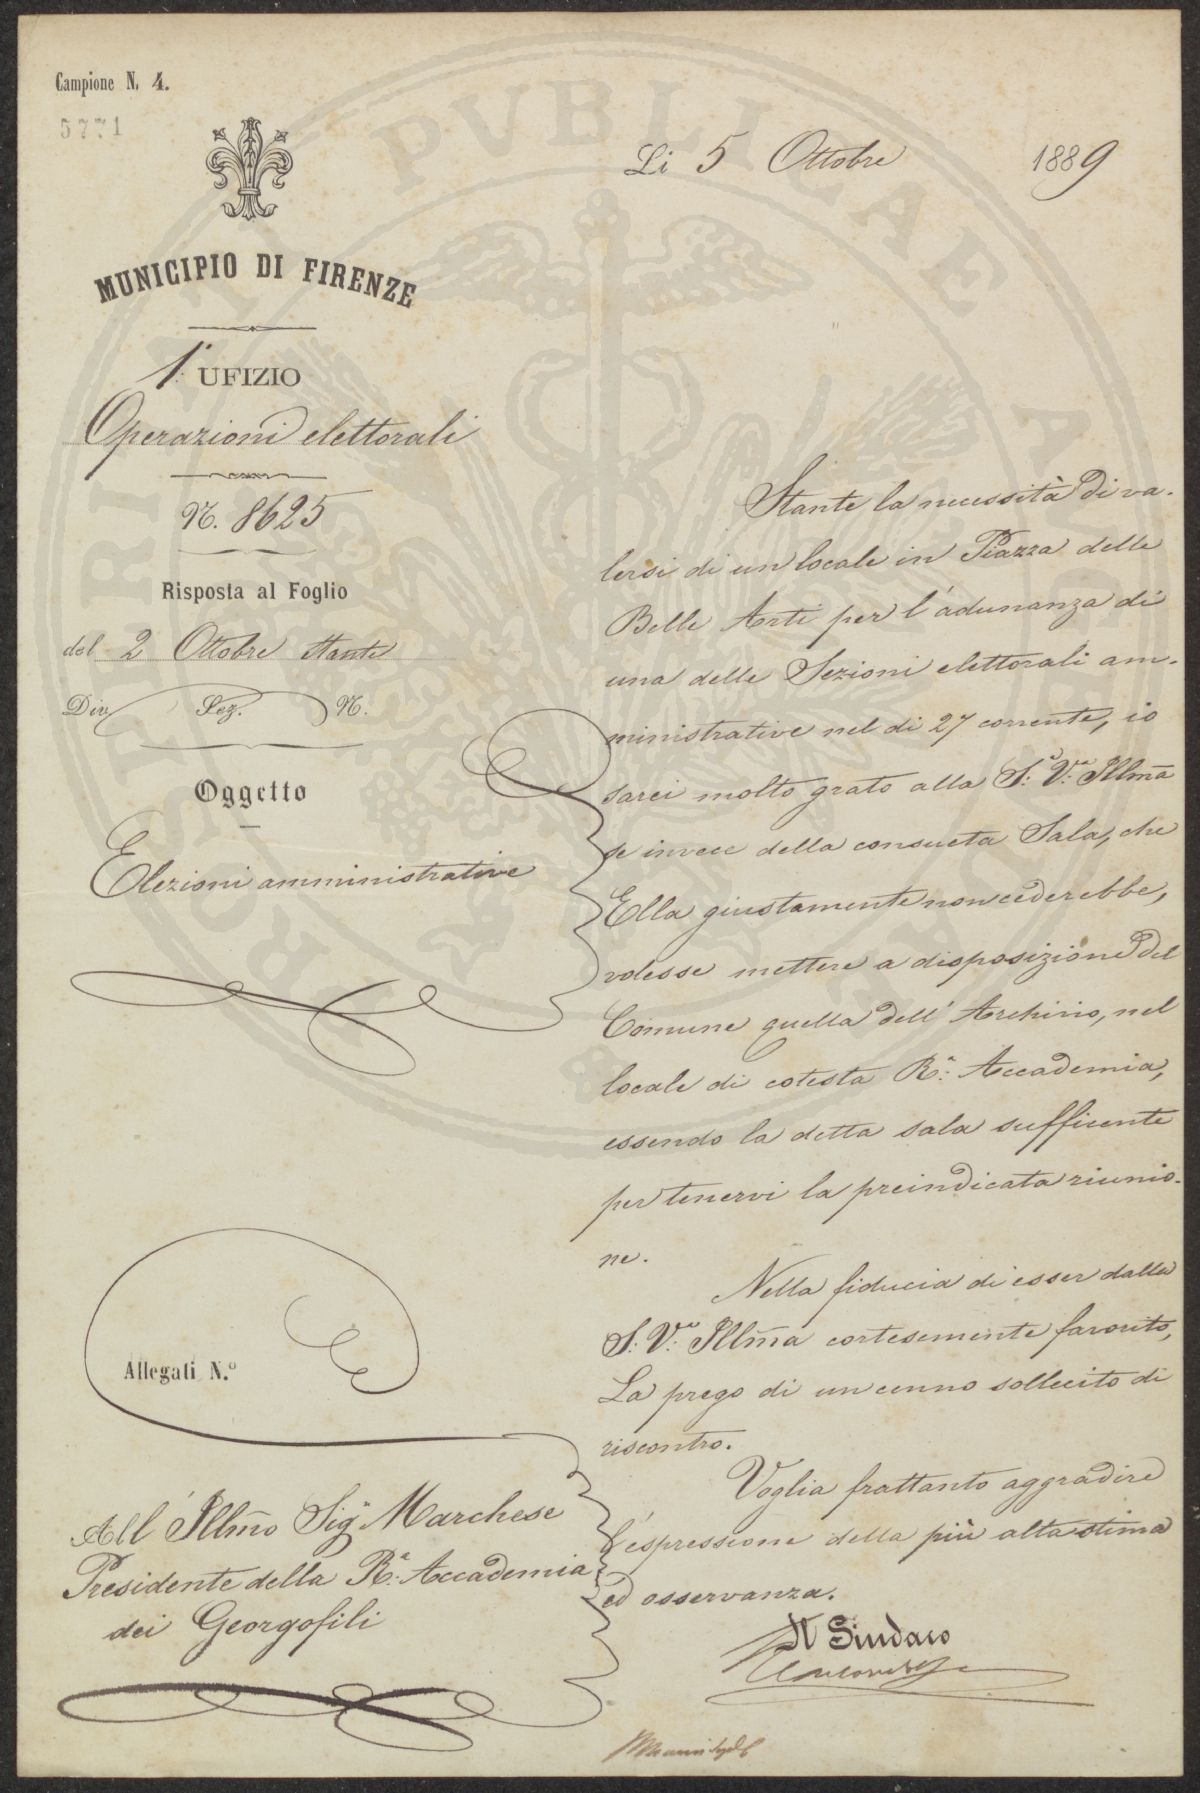 Campione N. 4.
5771
MUNICIPIO DI FIRENZE
1° UFIZIO
Operazioni elettorali
N. 8625
Risposta al Foglio
del 2 Ottobre stante
Div. Sez. N.
Oggetto
Elezioni amministrative
Allegati N.º
All'Illmo Sigr Marchese
Presidente della Ra: Accademia
dei Georgofili
Li 5 Ottobre 1889
Stante la necessità di va-
lersi di un locale in Piazza delle
Belle Arti per l'adunanza di
una delle Sezioni elettorali am-
ministrative nel dì 27 corrente, io
sarei molto grato alla S:a V:a Illma
se invece della consueta Sala, che
Ella giustamente non cederebbe,
volesse mettere a disposizione del
Comune quella dell'Archivio, nel
locale di cotesta Ra: Accademia,
essendo la detta sala sufficente
per tenervi la preindicata riunio-
ne.
Nella fiducia di esser dalla
S: V:a Illma cortesemente favorito,
La prego di un cenno sollecito di
riscontro.
Voglia frattanto aggradire
l'espressione della più alta stima
ed osservanza.
Il Sindaco